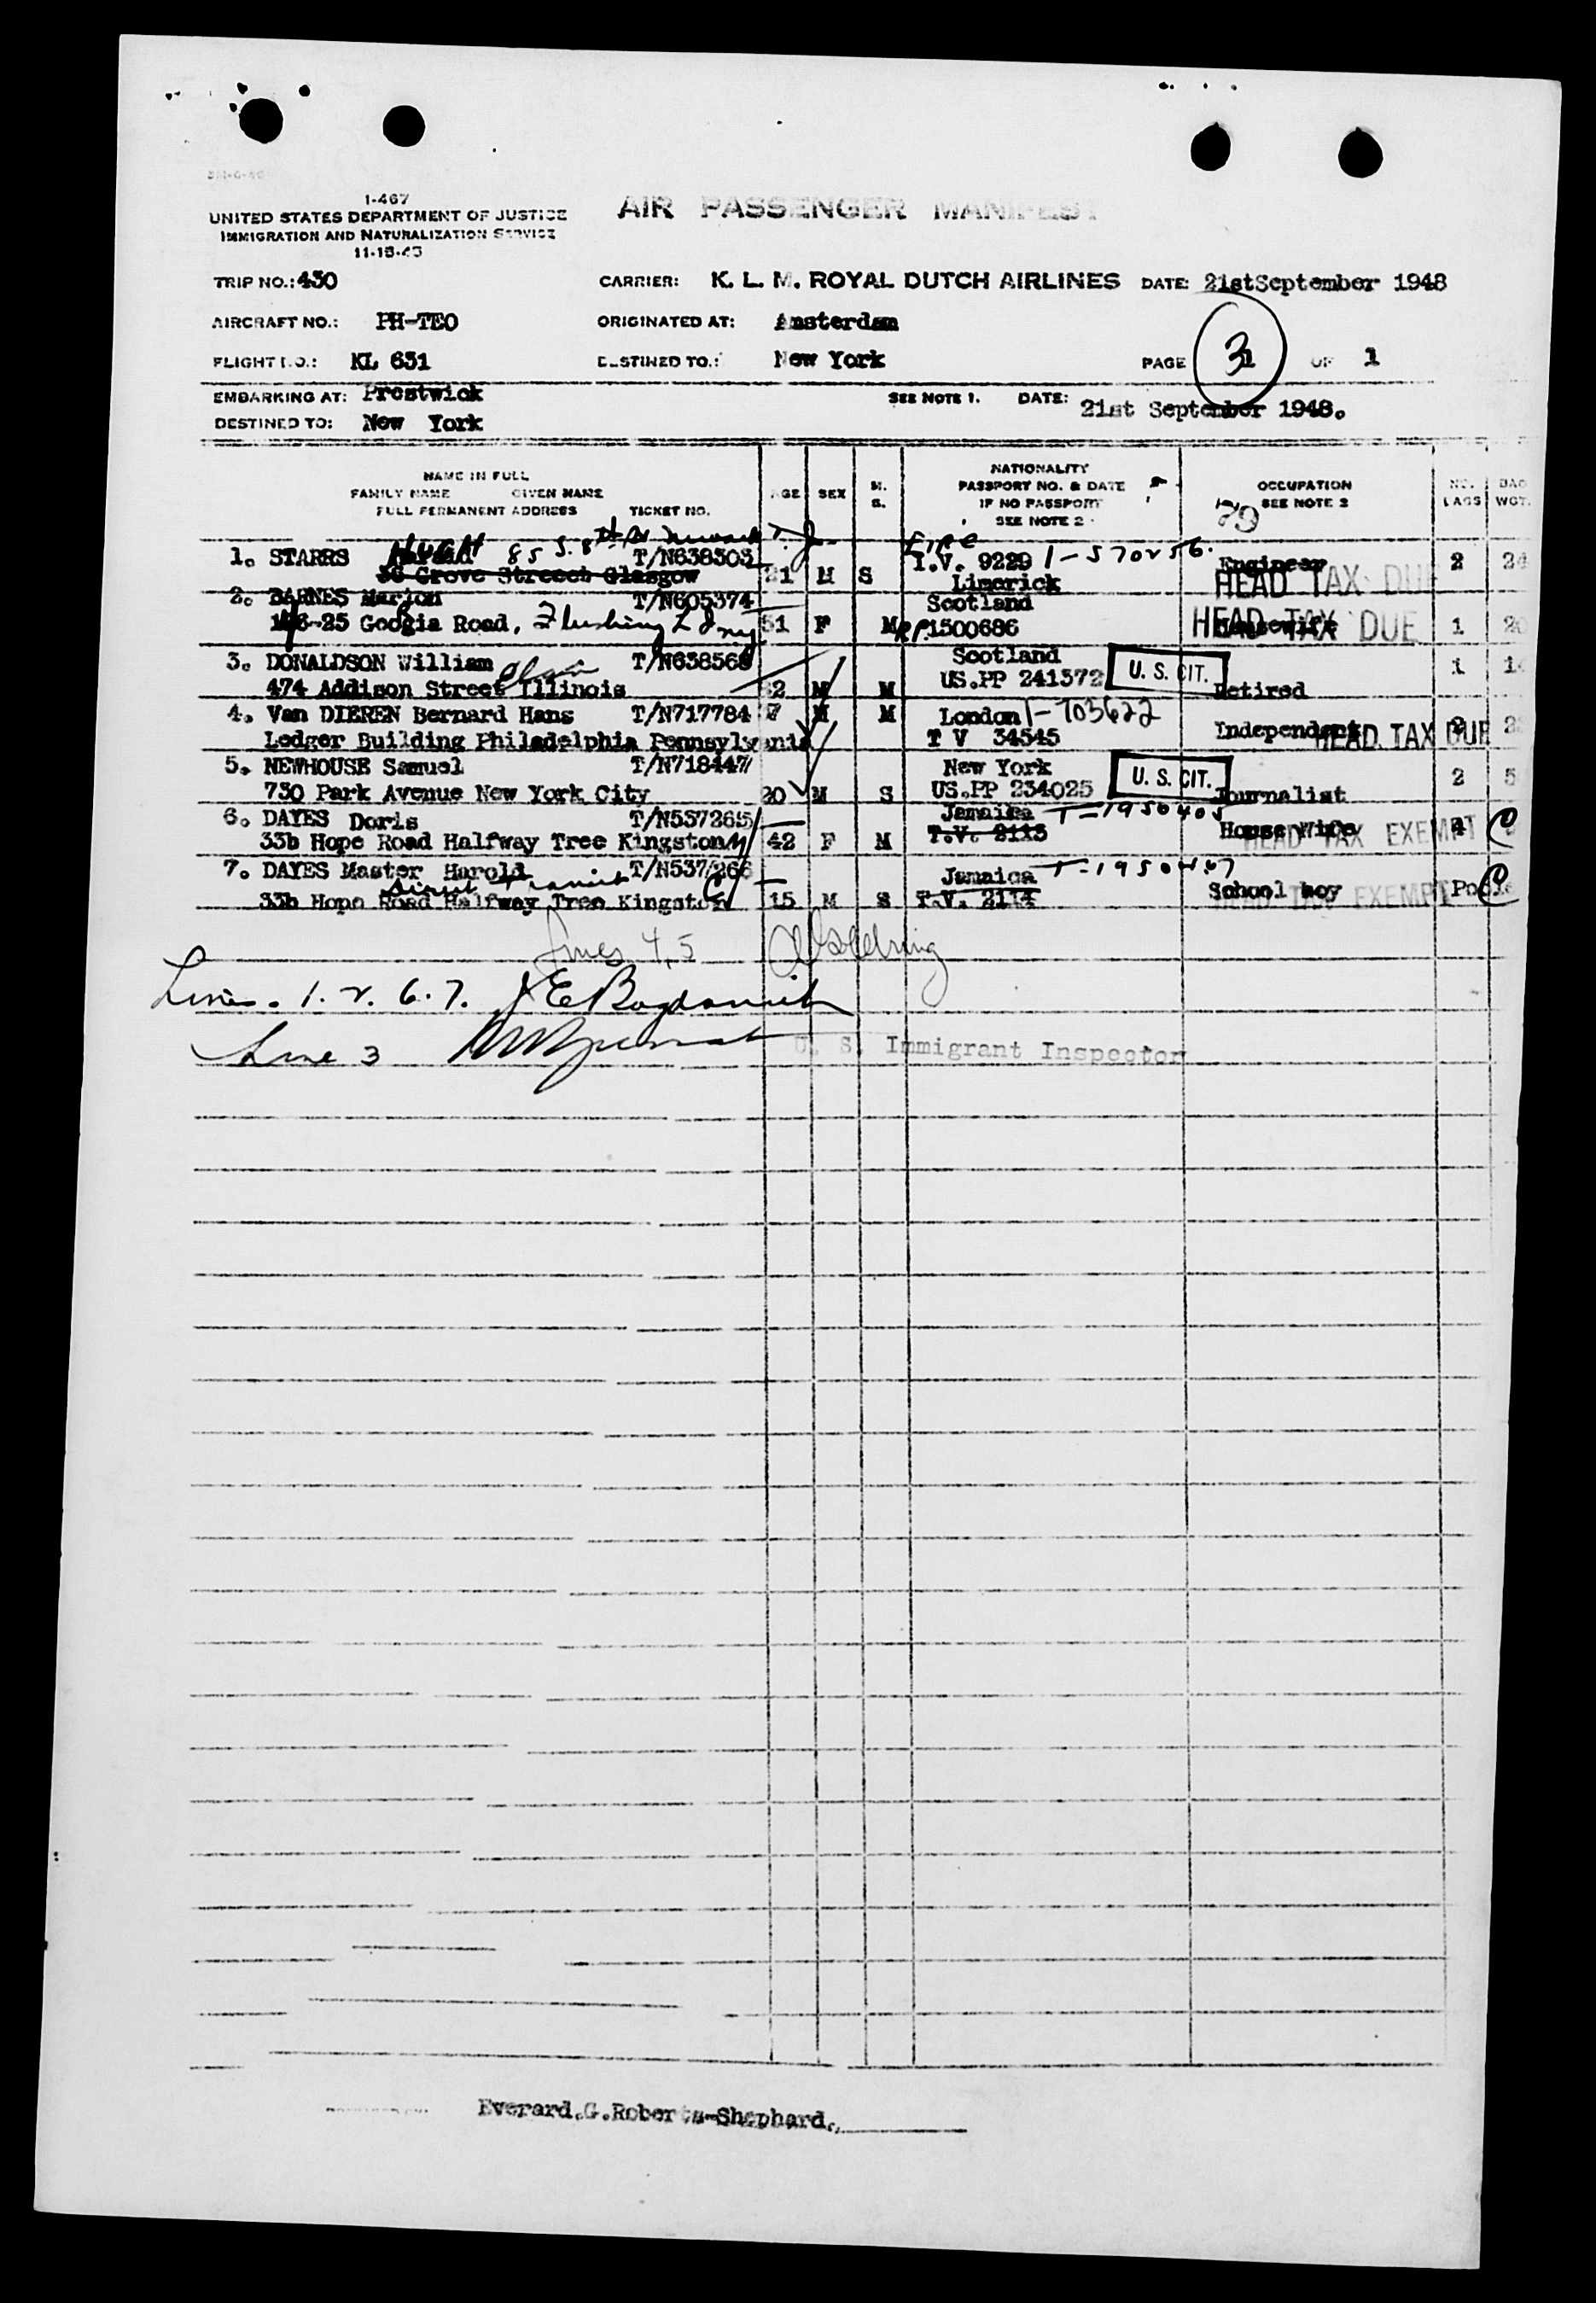 I-467
UNITED STATES DEPARTMENT OF JUSTICE
IMMIGRATION AND NATURALIZATION SERVICE
AIR PASSENGER MANIFEST
TRIP NO.: 430 CARRIER: K. L. M. ROYAL DUTCH AIRLINES DATE: 21stSeptember 1948
AIRCRAFT NO.: PH-TEO ORIGINATED AT: Amsterdam
FLIGHT NO.: KL 631 DESTINED TO.: New York PAGE 3 OF 1
EMBARKING AT: Prestwick SEE NOTE 1. DATE: 21st September 1948.
DESTINED TO: New York
NAME IN FULL
FAMILY NAME GIVEN NAME
FULL PERMANENT ADDRESS TICKET NO.
AGE SEX M. S.
NATIONALITY
PASSPORT NO. & DATE
IF NO PASSPORT
SEE NOTE 2
OCCUPATION
SEE NOTE 2
NO. BAGS BAG WGT.
85 S. 8th Newark N.J. Eire
1. STARRS HUGH T/N638303 21 M S T.V. 9229 Engineer 2
36 Grove Streeet Glasgow Limerick HEAD TAX DUE
2. BARNES Marion T/N605374 Scotland
25 Goodgia Road, Flushing L I NY 51 F M PP1500686 Housewife HEAD TAX DUE 1 20
3. DONALDSON William T/N638566 Scotland 1
474 Addison Street Illinois M M US.PP 241372 U. S. CIT. Retired
4. Van DIEREN Bernard Hans T/N717784 M M London T-703622
Ledger Building Philadelphia Pennsylvania T V 34545 Independent HEAD TAX DUE
5. NEWHOUSE Samuel T/N718447 New York 2 5
730 Park Avenue New York City 20 M S US.PP 234025 U. S. CIT. Journalist
6. DAYES Doris T/N537265 Jamaica T-1950405
33b Hope Road Halfway Tree Kingston 42 F M T.V. 2113 House Wife HEAD TAX EXEMPT
7. DAYES Master Harold T/N537266 Jamaica
Transit
33b Hope Road Halfway Tree Kingston 15 M S T.V. 2114 School boy HEAD TAX EXEMPT
Lines 4, 5
Lines. 1. 2. 6. 7.
Line 3
U. S. Immigrant Inspector
Everard.G.Roberts-Shephard.